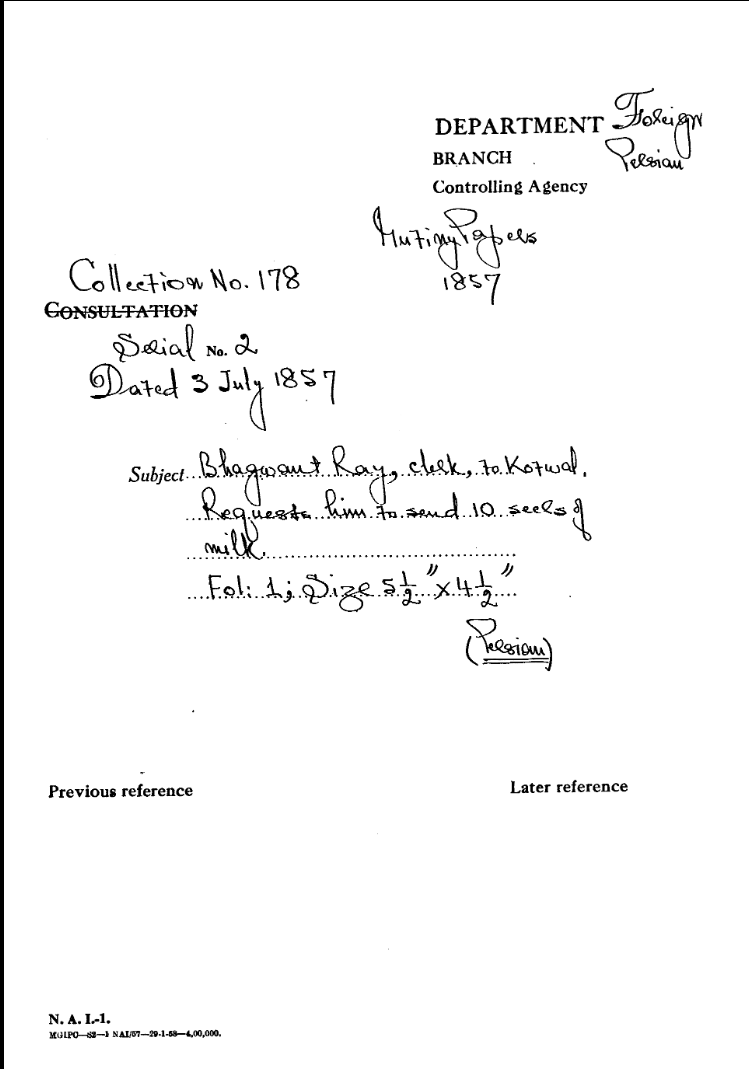 DEPARTMENT Foreign
BRANCH Persian
Controlling Agency
Mutiny Papers
1857
Collection No. 178
CONSULTATION
Serial No. 2
Dated 3 July 1857
Subject Bhagwant Ray, clerk, to Kotwal.
Requests him to send 10 seers of
milk.
Fol: 1; Size 5 1/2" x 4 1/2"
(Persian)
Previous reference
Later reference
N. A. I.-1.
MGIPC—S2—1 NAI/57—29-1-58—4,00,000.